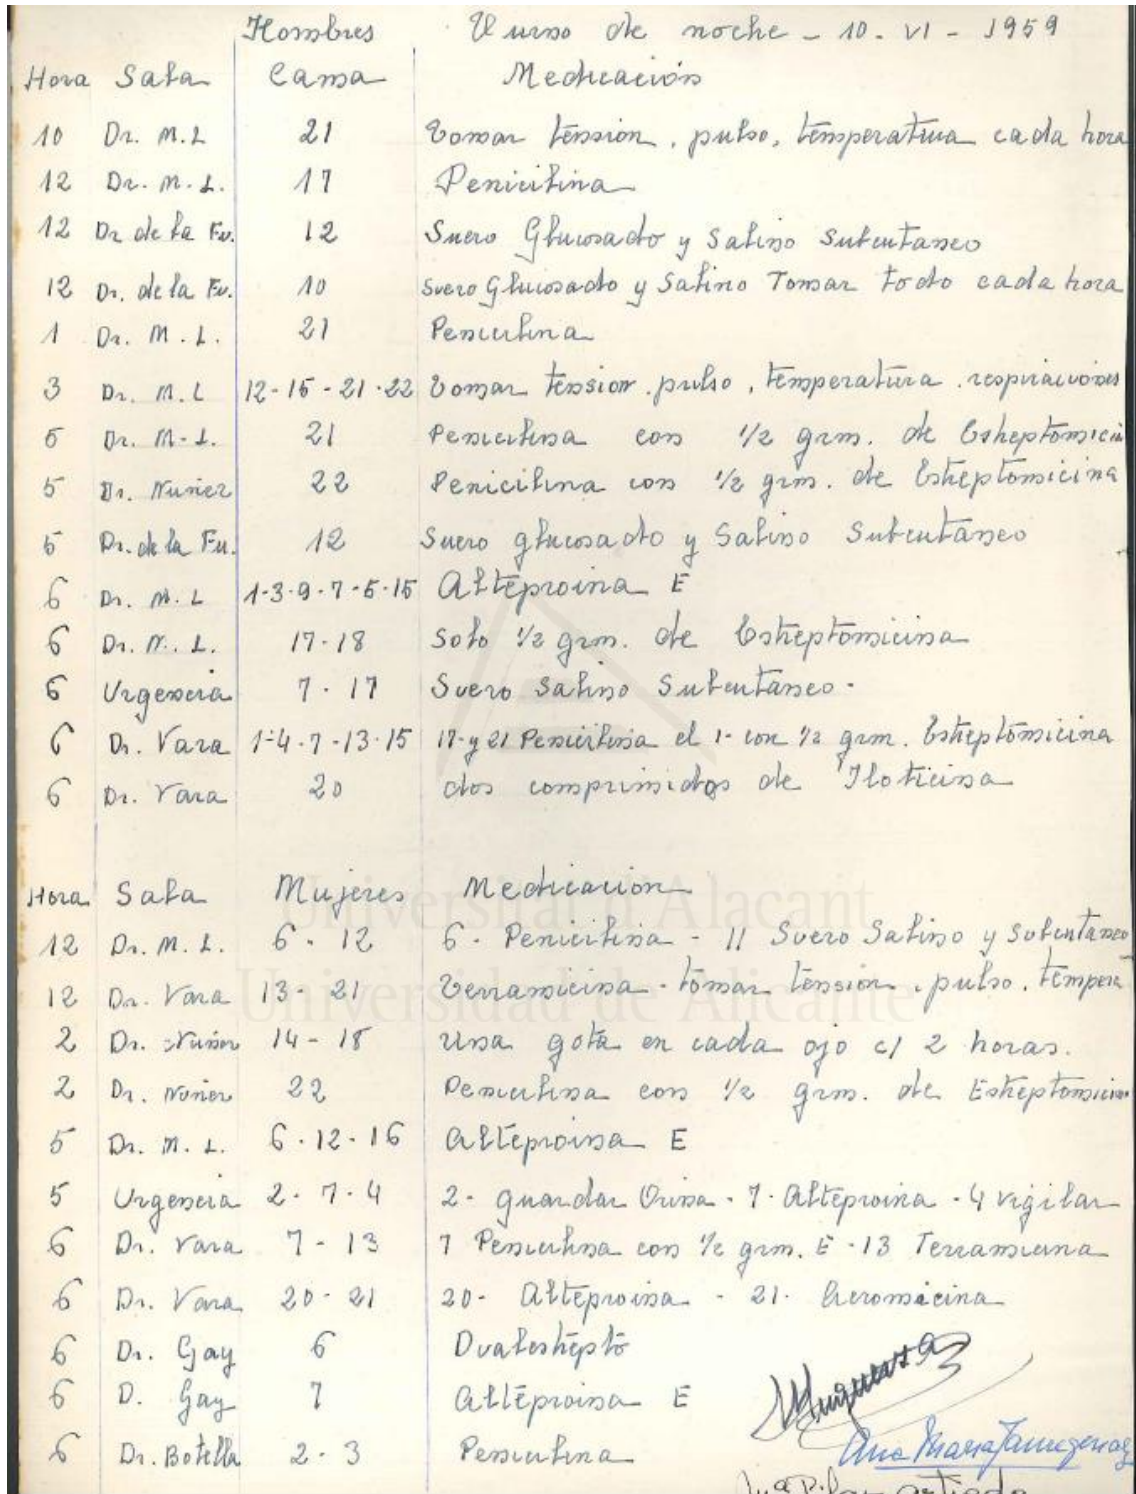 Hombres Turno de noche - 10 - VI - 1959
Hora Sala Cama Medicación
10 Dr. M.L 21 Tomar tension, pulso, temperatura cada hora
12 Dr. M. L. 17 Penicilina
12 Dr de la Fu. 12 Suero Glucosado y Salino Subcutaneo
12 Dr. de la Fu. 10 Suero Glucosado y Salino Tomar todo cada hora
1 Dr. M. L. 21 Penicilina
3 Dr. M. L 12-15-21-22 Tomar tension. pulso, temperatura. respiraciones
5 Dr. M-L. 21 Penicilina con 1/2 grm. de Estreptomici
5 Dr. Nuñez 22 Penicilina con 1/2 grm. de Estreptomicina
5 Dr. de la Fu. 12 Suero glucosado y Salino Subcutaneo
6 Dr. M. L 1-3-9-7-5-15 Alteproina E
6 Dr. M. L. 17-18 Solo 1/2 grm. de Estreptomicina
6 Urgencia 7 - 17 Suero Salino Subcutaneo -
6 Dr. Vara 1-4-7-13-15 17-y 21 Penicilina el 1- con 1/2 grm. Estreptomicina
6 Dr. Vara 20 dos comprimidos de Iloticina
Hora Sala Mujeres Medicacion
12 Dr. M. L. 6 - 12 6 - Penicilina - 11 Suero Salino y Subcutaneo
12 Dr. Vara 13 - 21 Terramicina - tomar tension, pulso. tempera
2 Dr. Nuñez 14 - 18 Una gota en cada ojo c/ 2 horas.
2 Dr. Nuñez 22 Penicilina con 1/2 grm. de Estreptomicin
5 Dr. M. L. 6-12-16 Alteproina E
5 Urgencia 2-7-4 2- guardar Orina - 7- Alteproina - 4 vigilar
6 Dr. Vara 7 - 13 7 Penicilina con 1/2 grm. E -13 Terramicina
6 Dr. Vara 20 - 21 20- Alteproina - 21- Acromicina
6 Dr. Gay 6 Dualestrepto
6 D. Gay 7 Alteproina E
6 Dr. Botella 2 - 3 Penicilina
Ana Maria
Universitat d'Alacant
Universidad de Alicante